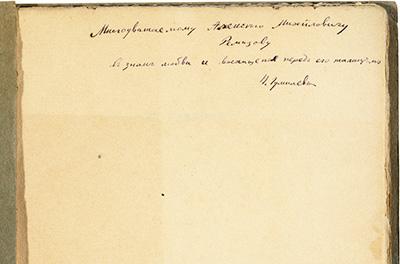 Многоуважаемому Алексею Михайловичу
Ремизову
въ знакъ любви и восхищенія передъ его талантомъ